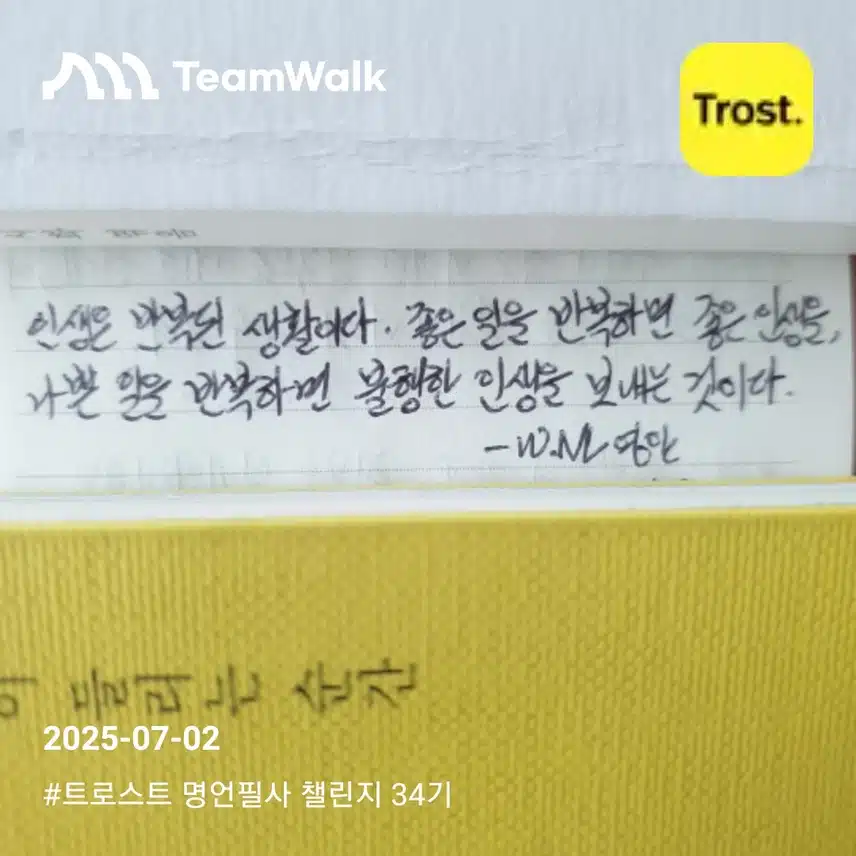 TeamWalk
Trost.
인생은 반복된 생활이다. 좋은 일을 반복하면 좋은 인생을,
나쁜 일을 반복하면 불행한 인생을 보내는 것이다.
-W.NL 영안
이 들리는 순간
2025-07-02
#트로스트 명언필사 챌린지 34기